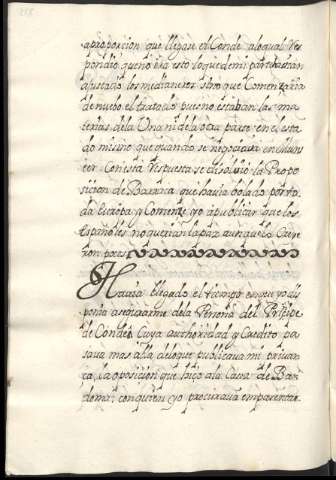 aproposicion que llegase el Conde aloqual Res
pondio que no era esto loque demi parte havian
ajustado los medianeros sino que Comenzaria
de nuebo el tratado pues no estaban las ma
terias dela Una ni dela otra parte en el esta
do mismo que quando se negociava en Muns
ter Con esta respuesta se disolvio la Propo
sicion de Baraxa que havia bolado por to
da Europa y Comenze yo a publicar que los
Españoles no querian la paz aunque la Cayn
ron paes
Havia llegado el tiempo en que yo dis
ponia asegurarme dela Persona del Principe
de Conde, Cuya authoridad y Credito pa
sava mas alla deloque publicava mi privan
ca, la oposicion que hiço ala Casa de Ban
doma, con quien yo procurava emparentar